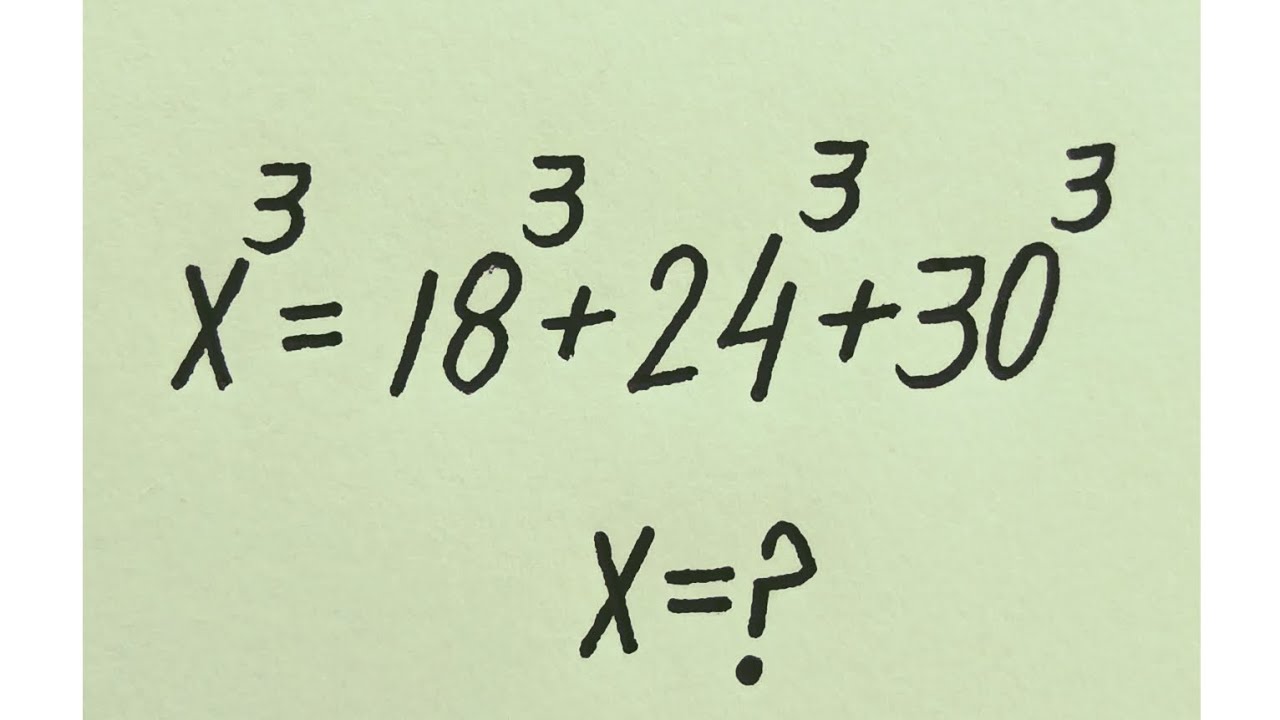 X³=18³+24³+30³
X=?